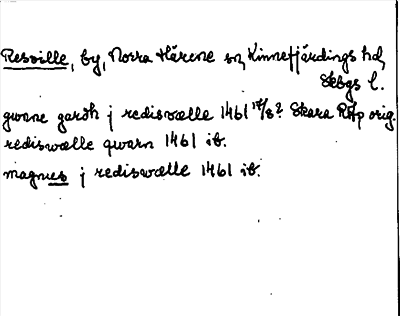 Resville, by, Norra Härene sn, Kinnefjärdings hd,
Skbgs l.
gwane gardh j rediswælle 1461 17/8? Skara Råp orig.
rediswælle qwarn 1461 ib.
magnus j rediswælle 1461 ib.